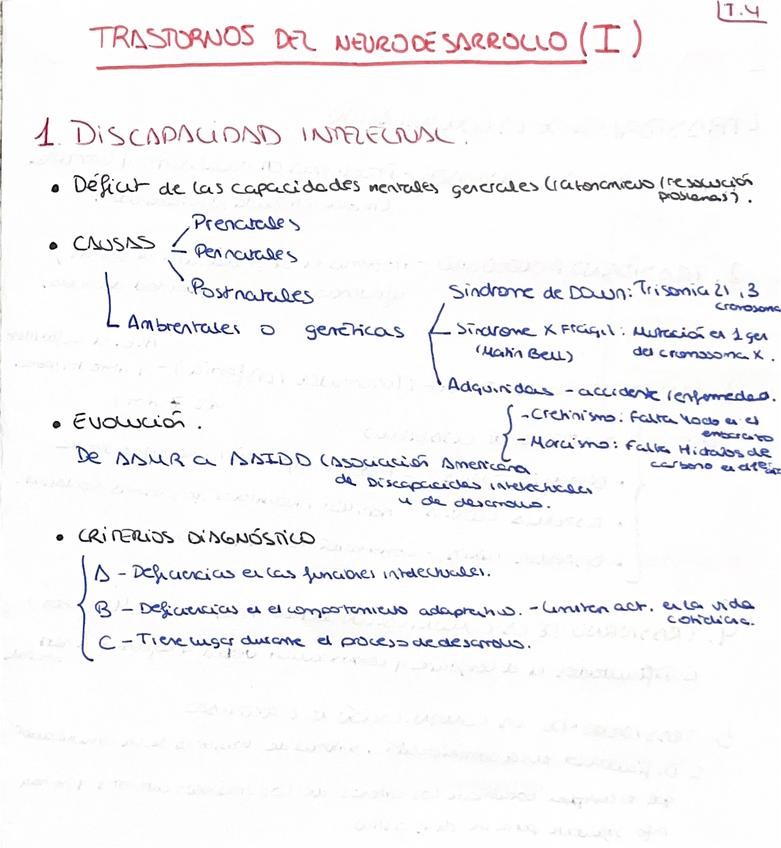 T.4
TRASTORNOS DEL NEURODESARROLLO (I)
1. DISCAPACIDAD INTELECTUAL.
• Déficit de las capacidades mentales generales (razonamiento / resolución
problemas).
• CAUSAS
Prenatales
Perinatales
Postnatales
Ambientales o genéticas
Síndrome de Down: Trisomía 21, 3
cromosoma
Síndrome X Frágil: Mutación en 1 gen
(Martin Bell) del cromosoma X.
Adquiridas - accidente / enfermedad.
- Cretinismo: Falta Yodo en el
embarazo
- Marcismo: Falta Hidratos de
carbono en
• Evolución.
De AAMR a AAIDD (Asociación Americana
de Discapacidades intelectuales
y de desarrollo.
• CRITERIOS DIAGNÓSTICO
A - Deficiencias en las funciones intelectuales.
B - Deficiencias en el comportamiento adaptativo. - Limiten act. en la vida
cotidiana.
C - Tiene lugar durante el proceso de desarrollo.